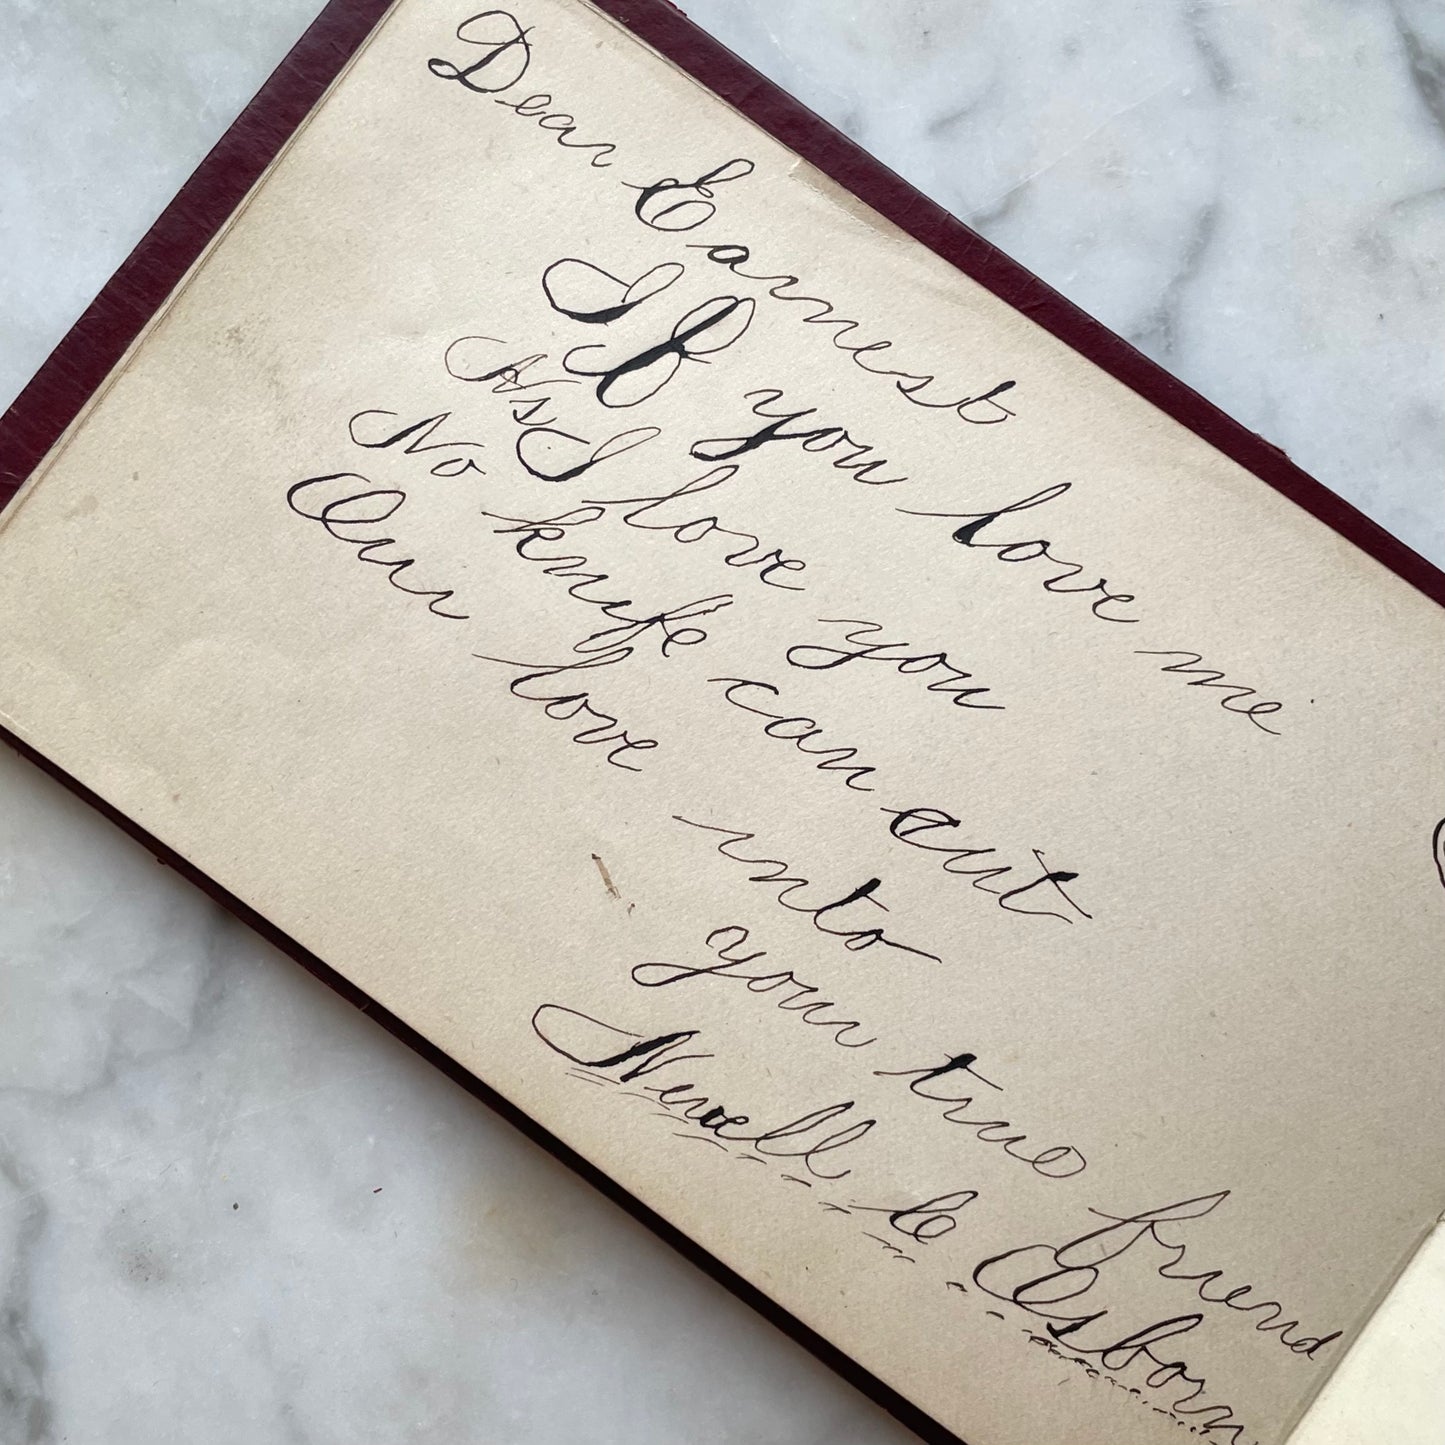 Dear Earnest
If you love me
As I love you
No knife can cut
Our love into
your true friend
Newell C Osborn